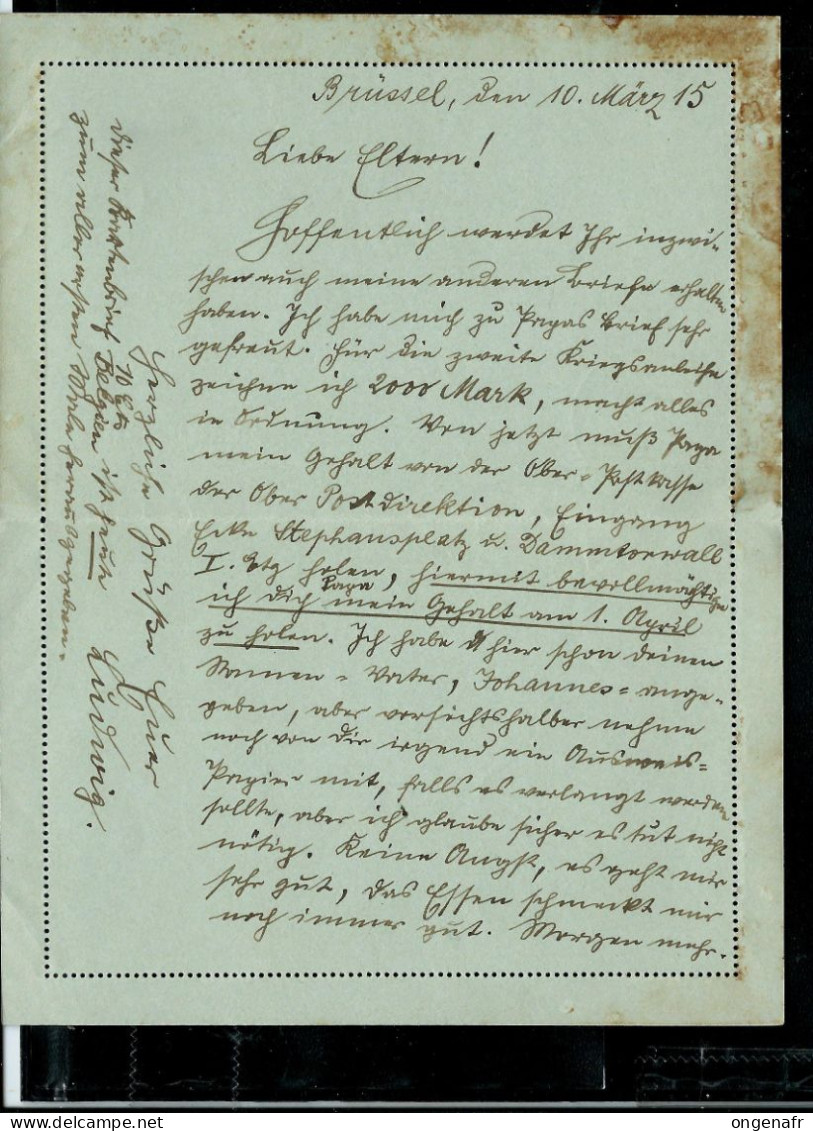 Brüssel, den 10. März 15
Liebe Eltern!
Hoffentlich werdet Ihr inzwi-
schen auch meine anderen Briefe erhalten
haben. Ich habe mich zu Papas Brief sehr
gefreut. Für die zweite Kriegsanleihe
zeichne ich 2000 Mark, macht alles
in Ordnung. Von jetzt muß Papa
mein Gehalt von der Ober-Postkasse
der Ober Postdirektion, Eingang
Ecke Stephansplatz u. Dammtorwall
I. Etg holen, hiermit bevollmächtige
ich Dich Papa mein Gehalt am 1. April
zu holen. Ich habe hier schon deinen
Namen - Vater, Johannes - ange-
geben, aber vorsichtshalber nehme
noch von Dir irgend ein Ausweis-
Papier mit, falls es verlangt werden
sollte, aber ich glaube sicher es tut nicht
nötig. Keine Angst, es geht mir
sehr gut, das Essen schmeckt mir
noch immer gut. Morgen mehr.
Herzliche Grüße Euer
Ludwig.
Dieser Kartenbrief 10 Cts Belgien ist heute
zum allerersten Male herausgegeben.
delcampe.net
ongenafr